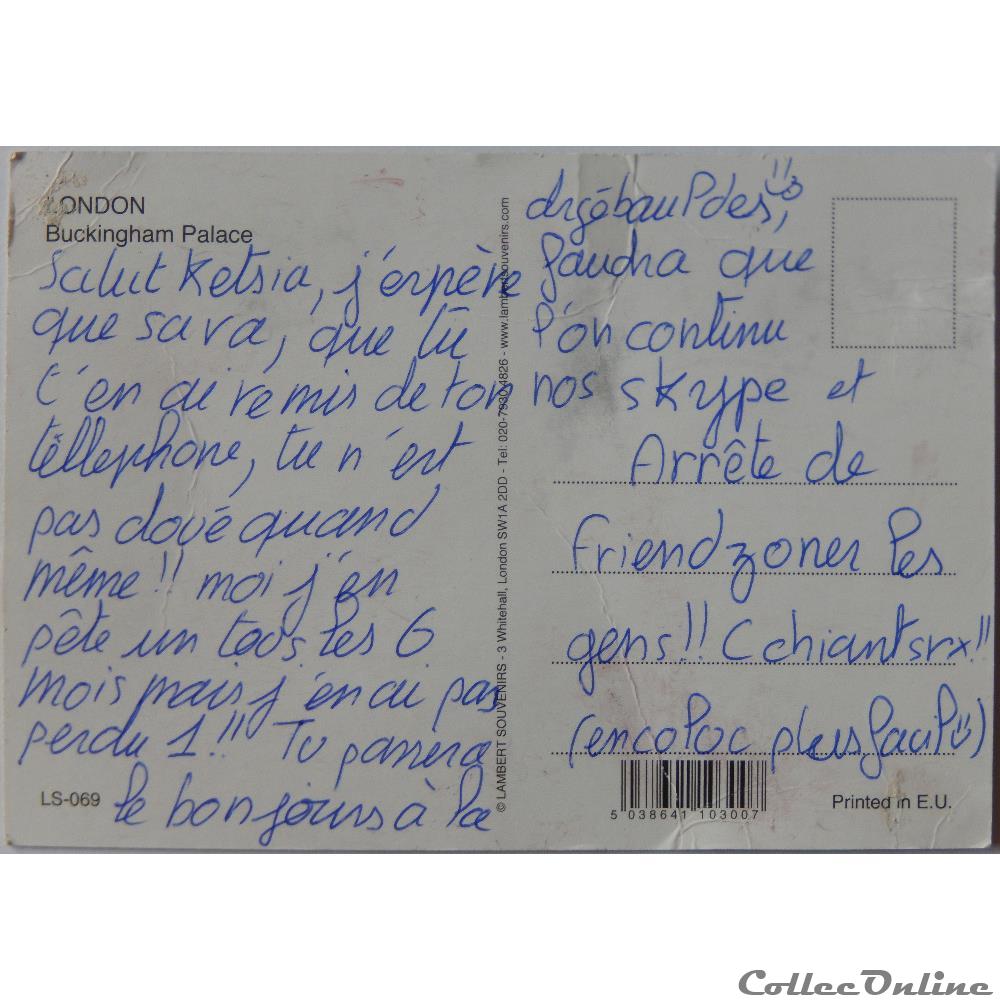 LONDON
Buckingham Palace
Salut Ketsia, j'espère
que sava, que tu
t'en ai remis de ton
téllephone, tu n'est
pas doué quand
même!! moi j'en
pête un tous les 6
mois mais j'en ai pas
perdu 1!! Tu passera
le bonjours à la
LS-069
© LAMBERT SOUVENIRS - 3 Whitehall, London SW1A 2DD - Tel: 020-79304826 - www.lambertsouvenirs.com
faudra que
l'on continu
nos skype et
Arrête de
friendzoner les
gens!! C chiant
(en coloc plus facil
5 038641 103007
Printed in E.U.
CollecOnline